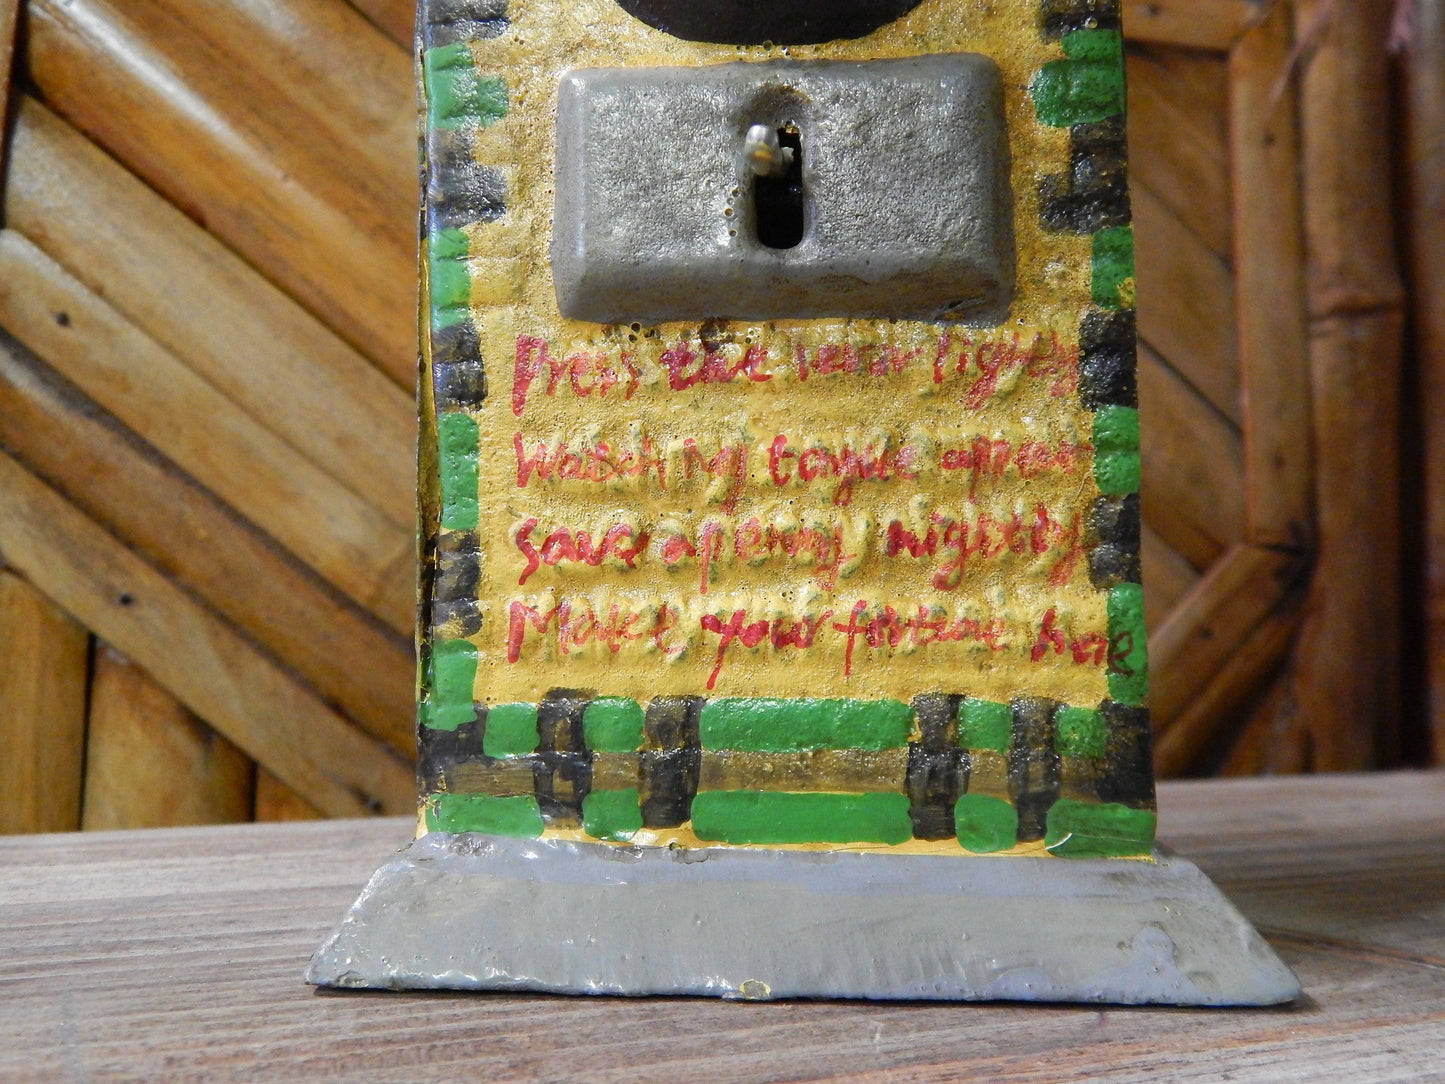 Press the lever lightly
Watch my tongue appear
save a penny nightly
Make your fortune here